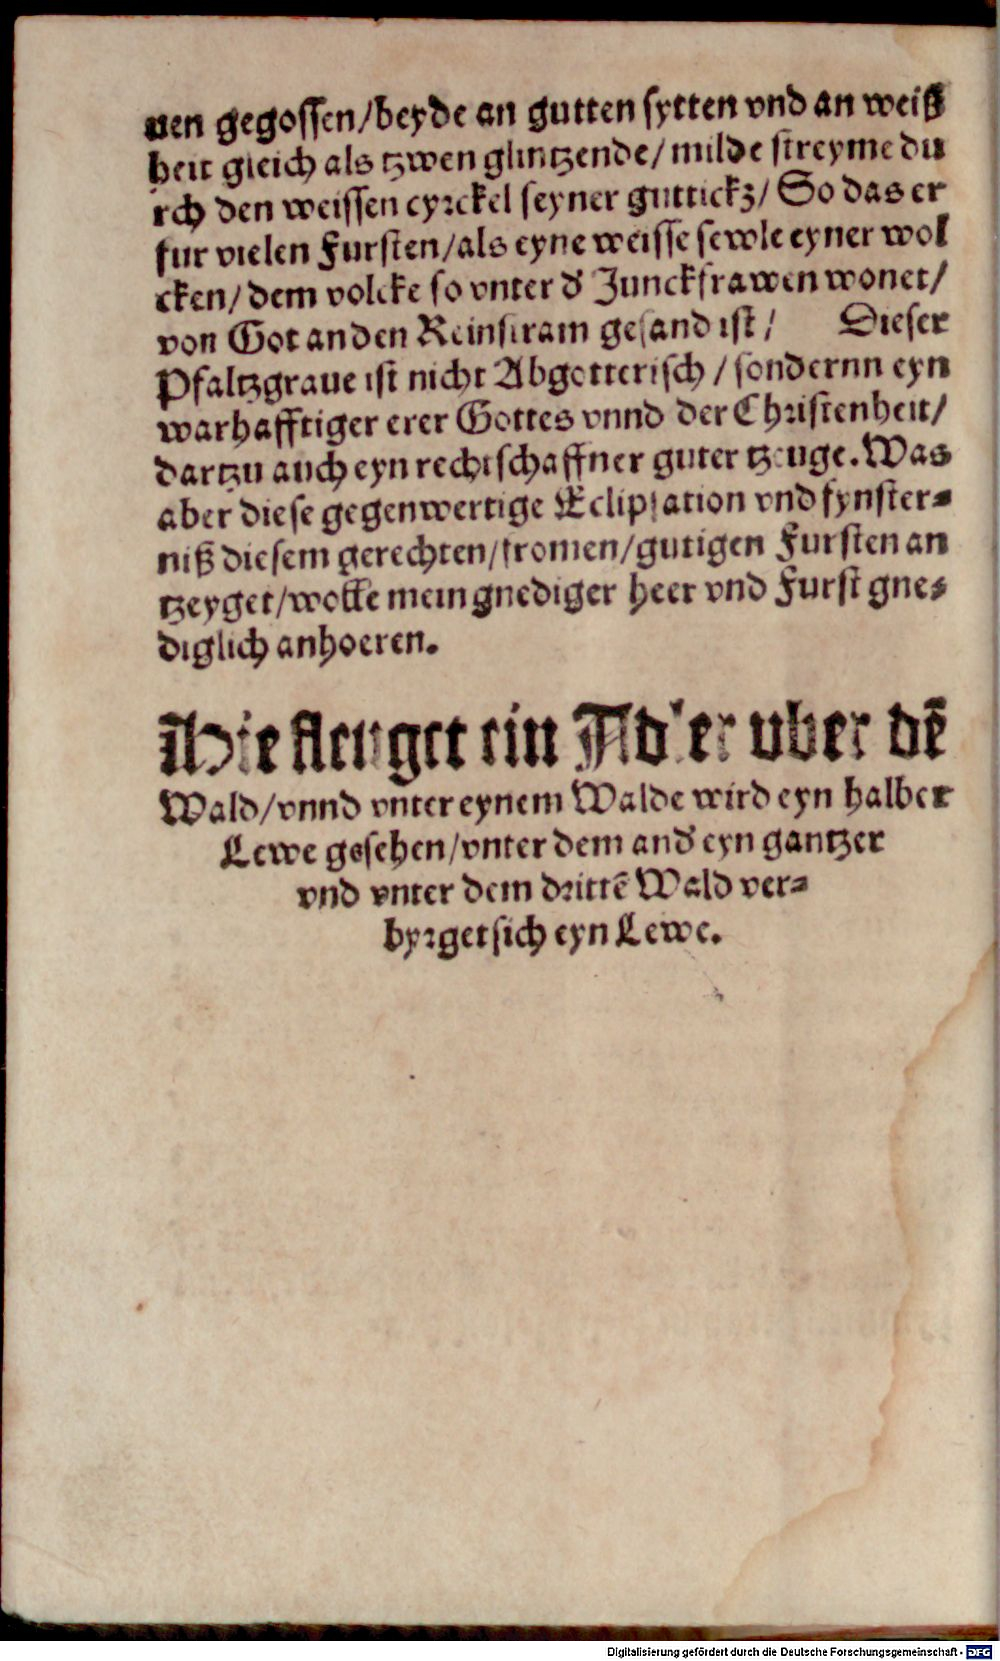 uen gegossen/beyde an gutten sytten vnd an weiß
heit gleich als tzwen glintzende/ milde streyme du
rch den weissen cyrckel seyner guttickz/ So das er
fur vielen Fursten/als eyne weisse sewle eyner wol
cken/ dem volcke so vnter d' Junckfrawen wonet/
von Got an den Reinstram gesand ist/ Dieser
Pfaltzgraue ist nicht Abgotterisch / sondernn eyn
warhafftiger erer Gottes vnnd der Christenheit/
dartzu auch eyn rechtschaffner guter tzeuge. Was
aber diese gegenwertige Eclipsation vnd fynster-
niß diesem gerechten/fromen/gutigen Fursten an
tzeyget/wolle mein gnediger heer vnd Furst gne-
diglich anhoeren.
Hie fleuget ein Adler vber dē
Wald/vnnd vnter eynem Walde wird eyn halber
Lewe gesehen/vnter dem and' eyn gantzer
vnd vnter dem drittē Wald ver-
byrget sich eyn Lewe.
Digitalisierung gefördert durch die Deutsche Forschungsgemeinschaft - DFG